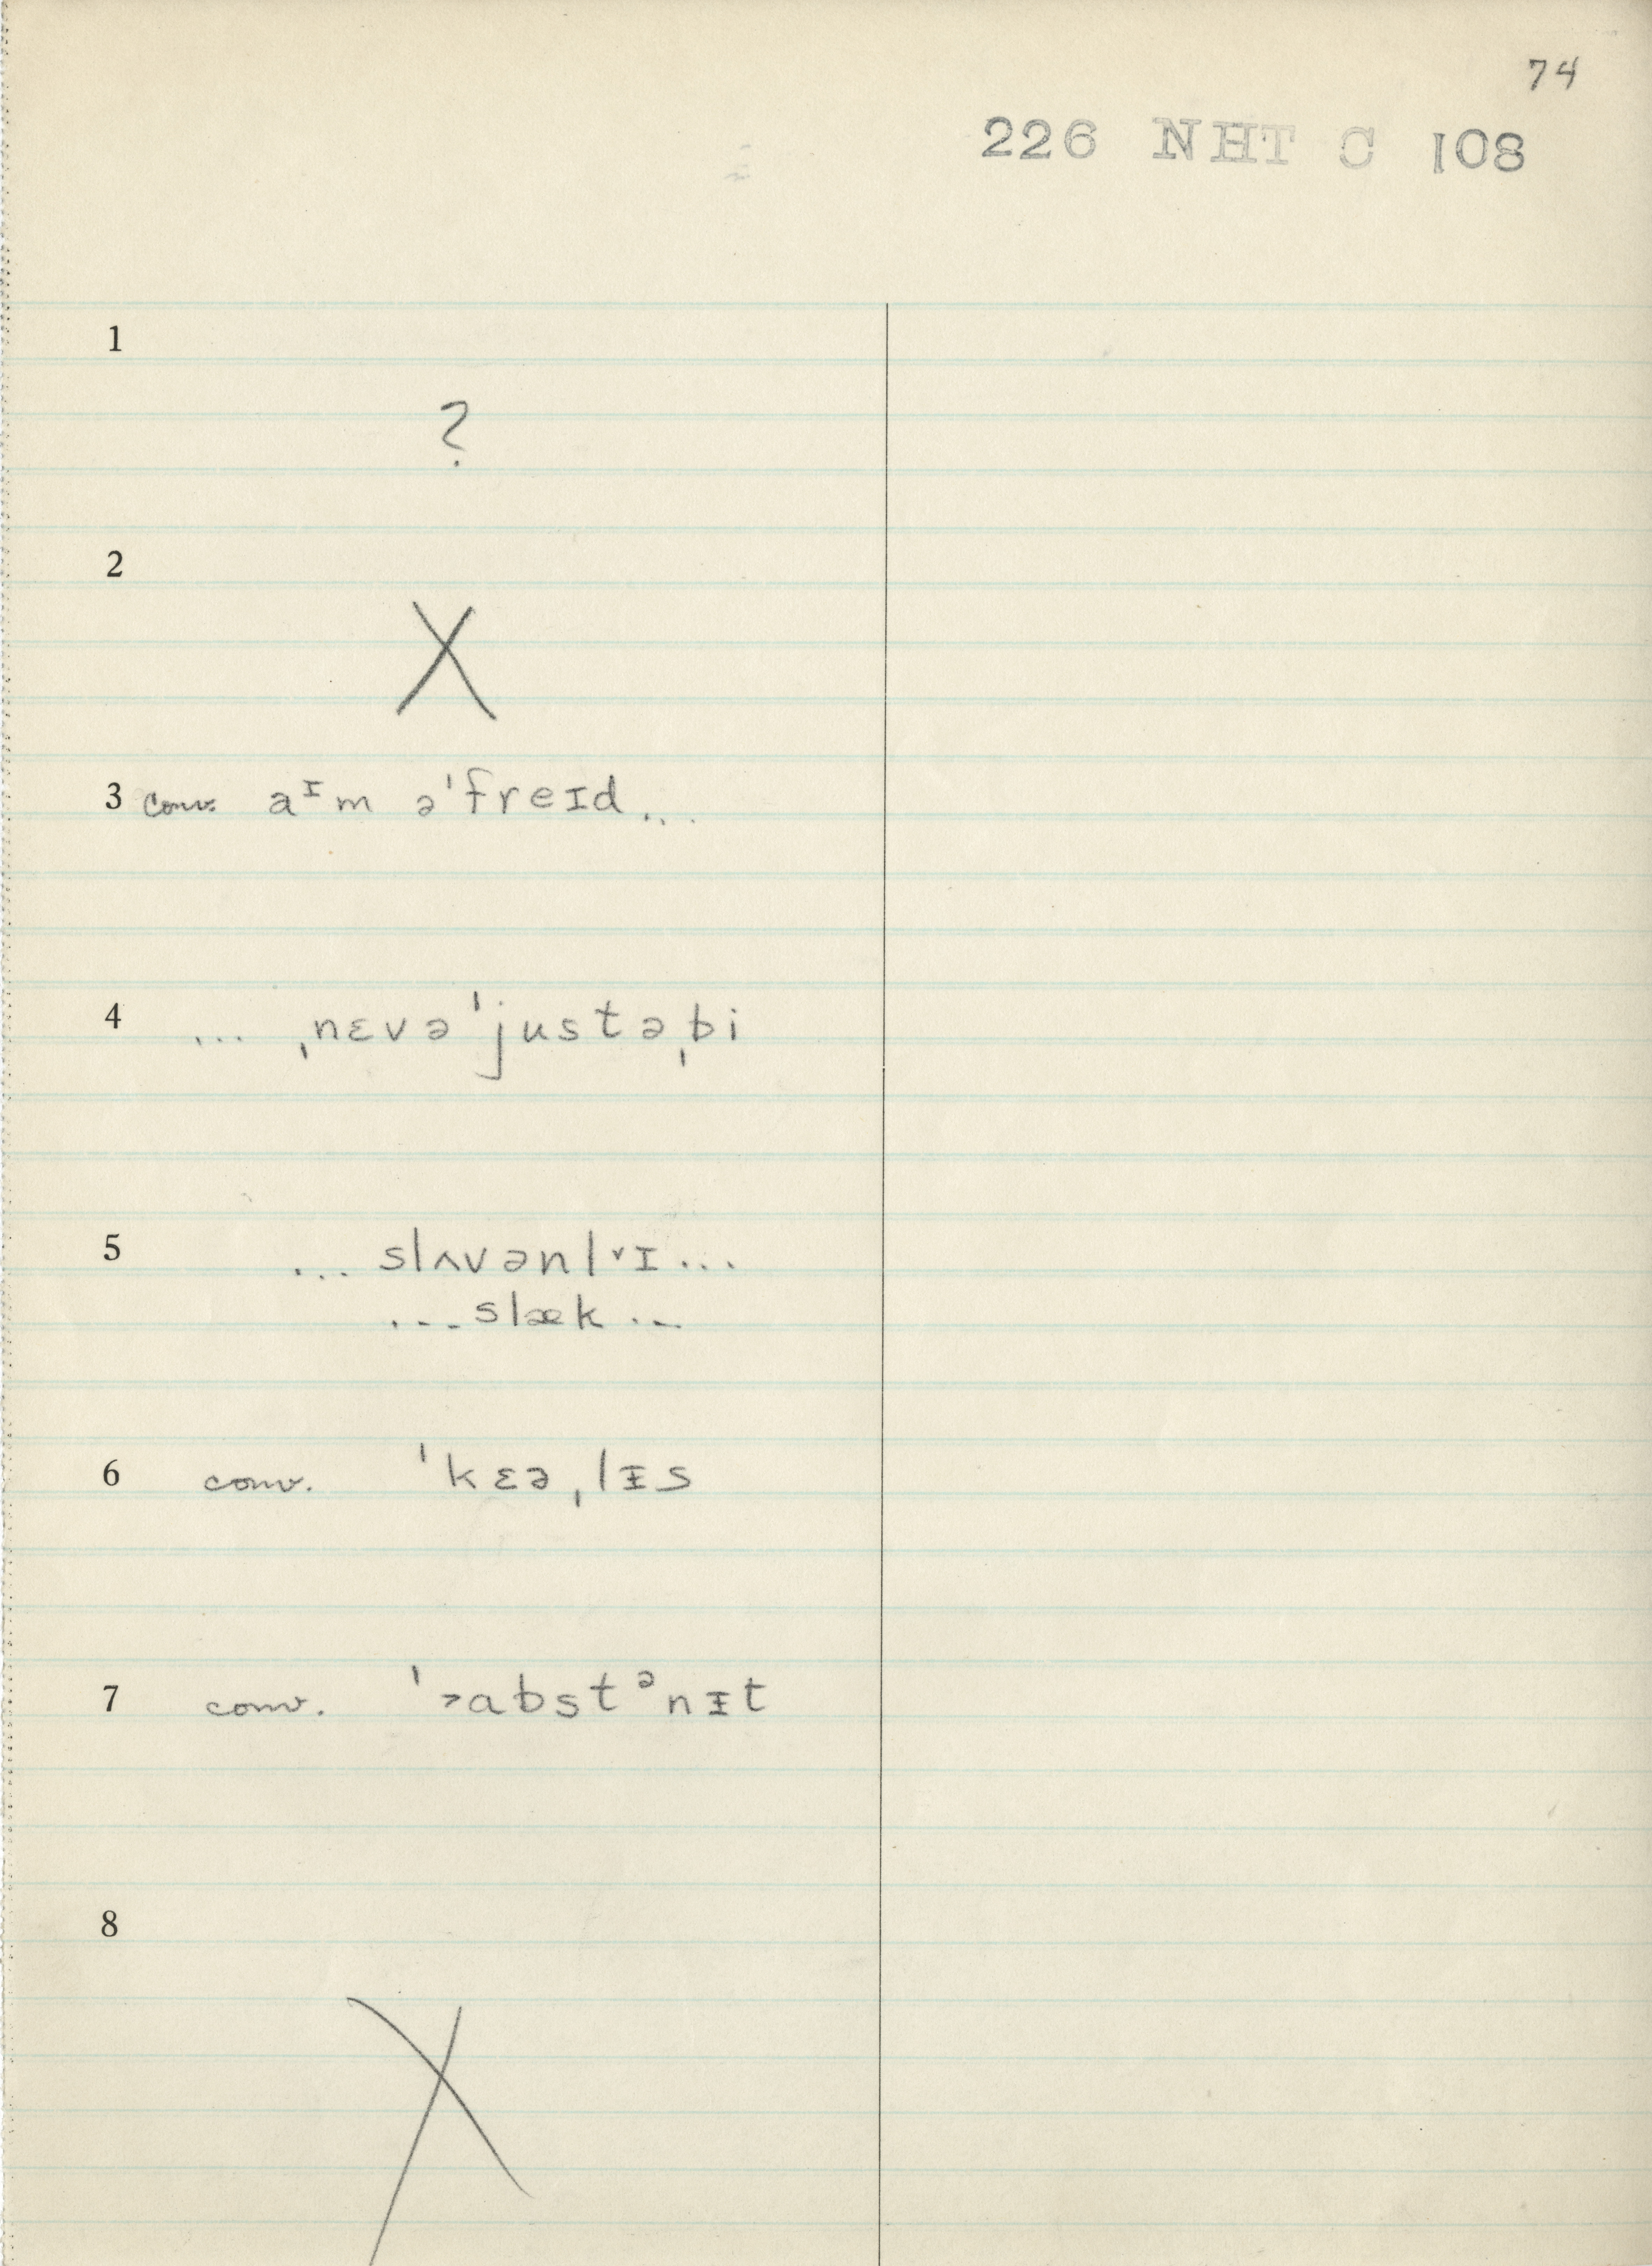 74
226 NHT C 108
1
?
2
X
3 conv. aᴵm ə'freɪd...
4 ... ˌnɛvə'justəˌbi
5 ... slʌvənl ˅ɪ...
...slæk...
6 conv. 'kɛəˌlᵻs
7 conv. '˃abstᵊnᵻt
8
X